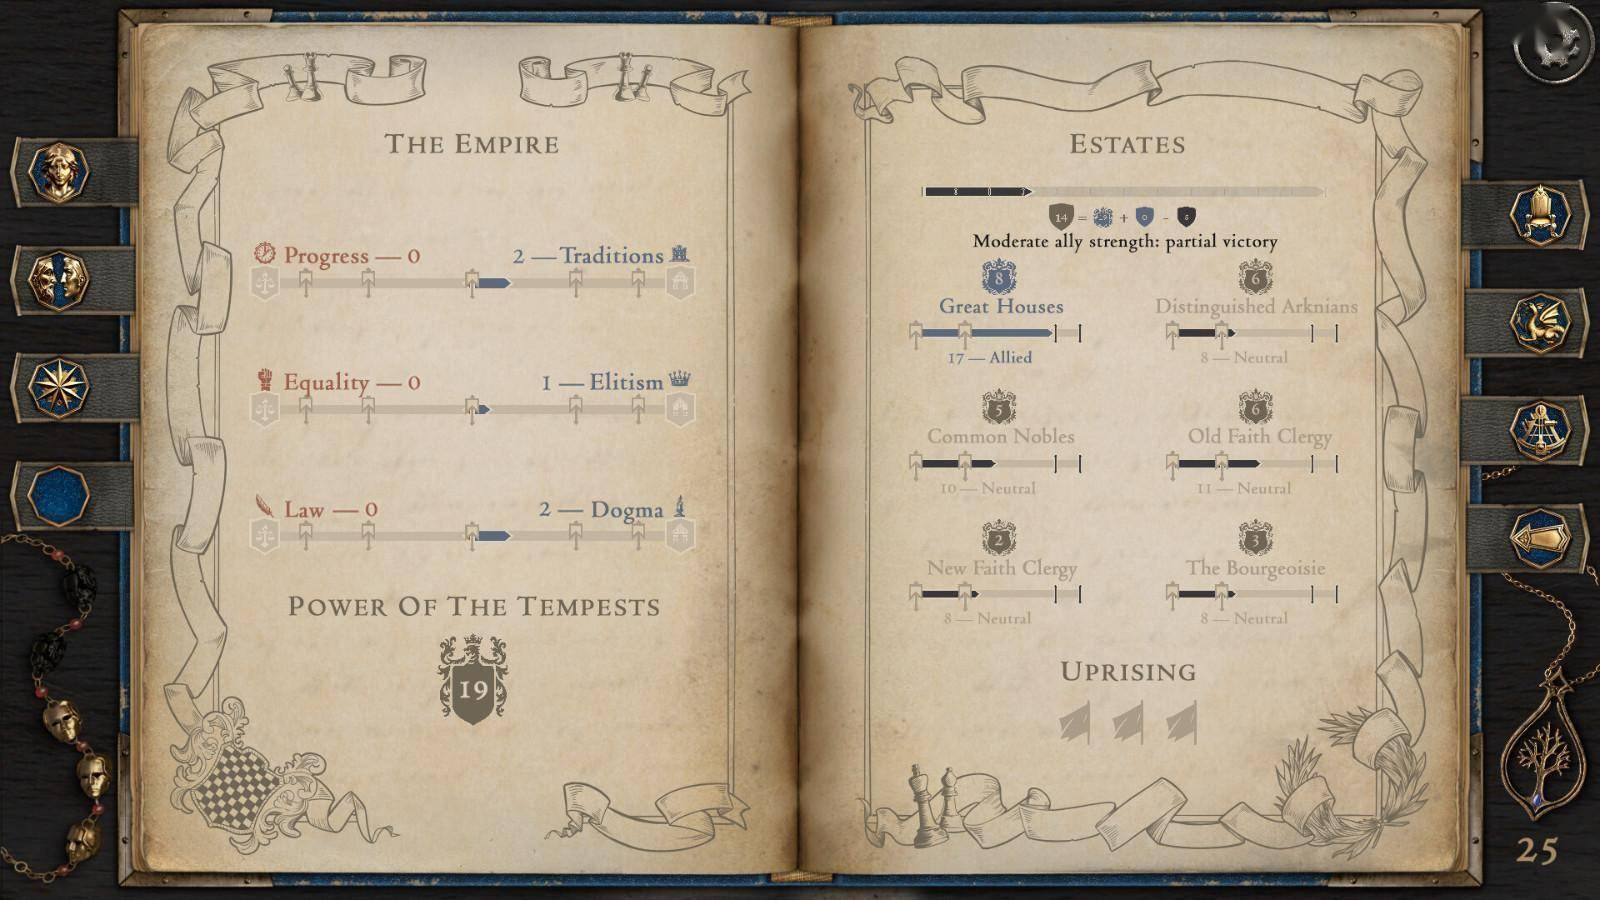 THE EMPIRE
Progress — 0
2 — Traditions
Equality — 0
1 — Elitism
Law — 0
2 — Dogma
POWER OF THE TEMPESTS
19
ESTATES
14 = + 0 -
Moderate ally strength: partial victory
8
Great Houses
17 — Allied
6
Distinguished Arknians
8 — Neutral
5
Common Nobles
10 — Neutral
6
Old Faith Clergy
11 — Neutral
2
New Faith Clergy
8 — Neutral
3
The Bourgeoisie
8 — Neutral
UPRISING
25